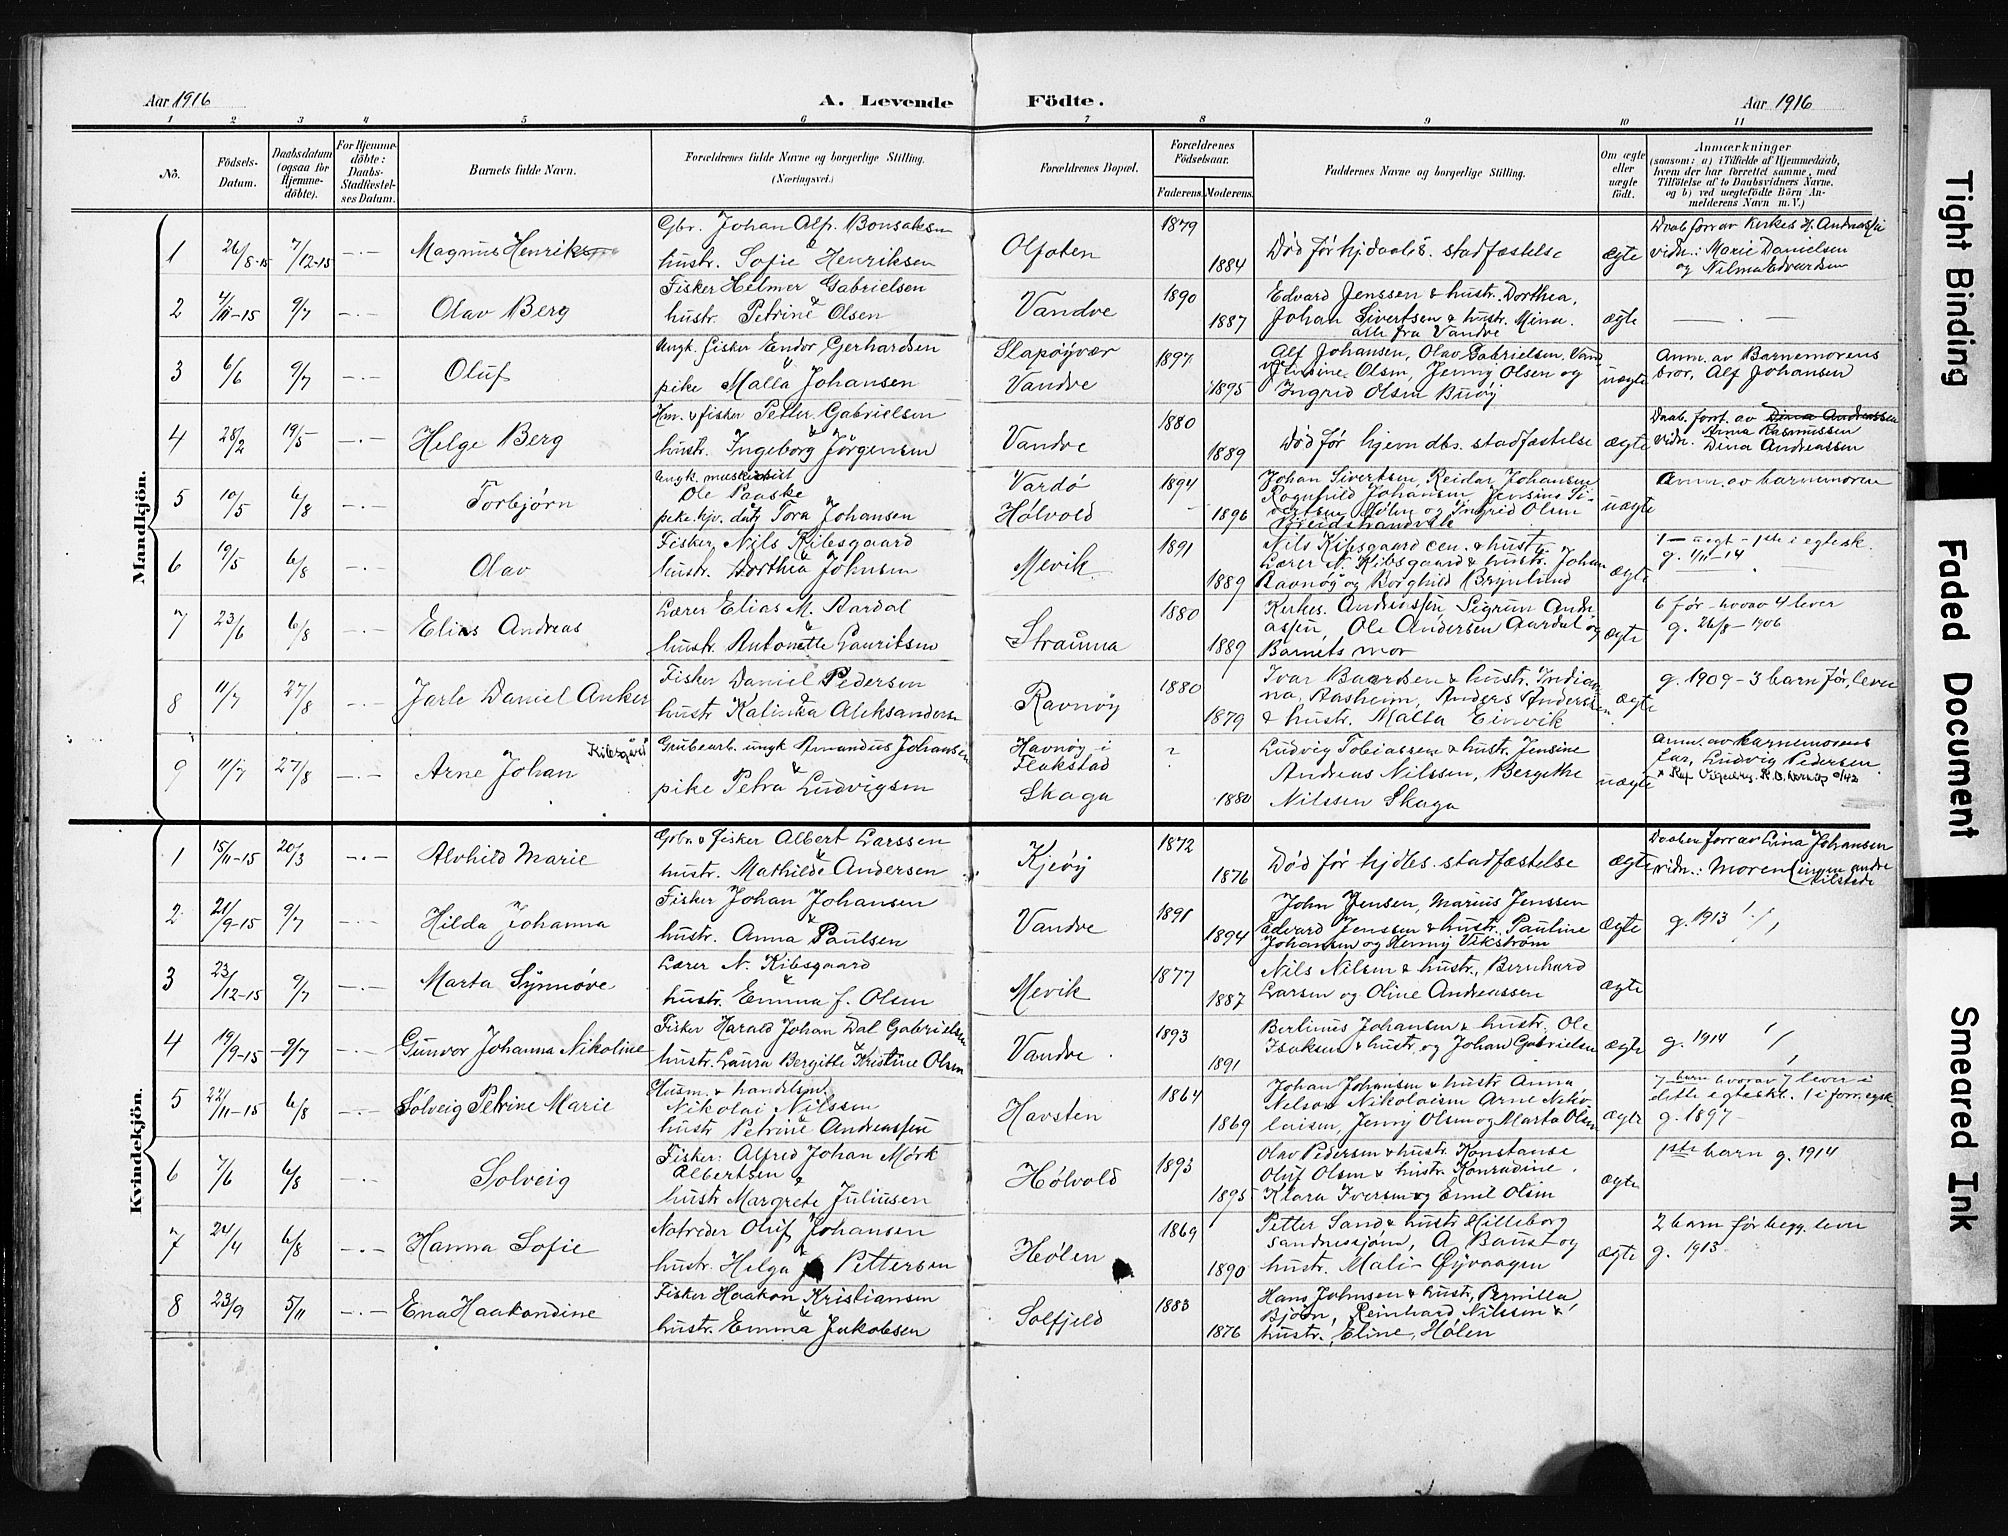 Aar 1916
A. Levende Födte.
Aar 1916
1 2 3 4 5 6 7 8 9 10 11
No.
Födsels-Datum.
Daabsdatum (ogsaa for Hjemmedöbte).
For Hjemmedöbte: Daabs-Stadfæstelses Datum.
Barnets fulde Navn.
Forældrenes fulde Navne og borgerlige Stilling.
(Næringsvei.)
Forældrenes Bopæl.
Forældrenes Födselsaar.
Faderens. Moderens.
Faddernes Navne og borgerlige Stilling.
Om ægte eller uægte födt.
Anmærkninger
(saasom: a) i Tilfælde af Hjemmedaab, hvem der har forrettet samme, med Tilföielse af to Daabsvidners Navne. og b) ved uegtefödte Börn Anmelderens Navn m. V.)
Mandkjön.
1 26/8-15 7/12-15 -.- Magnus Henrik
Gbr. Johan Alf. Bonsaksen
&
hustr. Sofie Henriksen
Olfoten 1879 1884
Død før hjdaabs. stadfæstelse
ægte
Daab forr av Kirkes H. Andreassen
vidn.: Marie Danielsen
og Nilma Edvardsen
2 4/11-15 9/7 -.- Olav Berg
Fisker Helmer Gabrielsen
&
hustr. Petrine Olsen
Vandve 1890 1887
Edvard Jenssen & hustr. Dorthea,
Johan Sivertsen & hustr. Mina.
alle fra Vandve
ægte
3 6/6 9/7 -.- Oluf
Ungk. fisker Endor Gerhardsen
&
pike Malla Johansen
Slapøyvær
Vandve
1897 1895
Alf Johansen, Olav Gabrielsen, Vand
Jensine Olsen, Jenny Olsen og
Ingrid Olsen Buøy
uægte
Anm. av Barnemorens
bror, Alf Johansen
4 28/2 19/5 -.- Helge Berg
Hm. & fisker Petter Gabrielsen
&
hustr. Ingeborg Jørgensen
Vandve 1880 1889
Død før hjem dbs. stadfæstelse
ægte
Daab forr. av Dina Andreassen
Anna Rasmussen
vidn. Dina Andreassen
5 10/5 6/8 -.- Torbjørn
Ungk. maskinist
Ole Paaske
&
pike hjv. dat. Tora Johansen
Vardø
Hølvold
1894 1896
Johan Sivertsen, Reidar Johansen
Ragnhild Johansen, Jensine Si-
vertsen, Hølen og Ingrid Olsen
uægte
Anm. av barnemoren
6 19/5 6/8 -.- Olav
Fisker Nils Kibsgaard
&
hustr. Dorthea Johnsen
Mevik 1891 1889
Nils Kibsgaard sen. & hustr.
Lærer N. Kibsgaard & hustr. Johan
Ravnøy og Borghild Brynlund
ægte
1 - uegt - 1ste i egtesk.
g. 1/11-14
7 23/6 6/8 -.- Elias Andreas
Lærer Elias M. Aardal
&
hustr. Antonette Lauritsen
Strauma 1880 1889
Kirkes. Andreassen, Sigrun Andre
assen, Ole Andersen Aardal og
Barnets mor
ægte
6 før - hvorav 4 lever
g. 26/8-1906
8 11/7 27/8 -.- Jarle Daniel Anker
Fisker Daniel Pedersen
&
hustr Kalinka Aleksandersen
Ravnøy 1880 1879
Ivar Baardsen & hustr. Indian-
na, Aasheim, Anders Andersen
& hustr. Malla Einvik
ægte
g. 1909 - 3 barn før, lever
9 11/7 27/8 -.- Arne Johan Kibsgård
Grubearb. ungk Amandus Johansen
&
pike Petra Ludvigsen
Havnøy i
Flakstad
Skaga
? 1880
Ludvig Tobiassen & hustr. Jensine
Andreas Nilssen, Bergithe
Nilssen Skaga
uægte
Anm. av barnemorens
far, Ludvig Pedersen.
Kvindekjön.
1 15/11-15 20/3 -.- Alvhild Marie
Gbr. & fisker Albert Larssen
&
hustr. Mathilde Andersen
Kjeøy 1872 1876
Død før hjdbs. stadfæstelse
ægte
Daaben forr av Lina Johansen
vidn.: Moren (ingen andre
tilstede
2 21/9-15 9/7 -.- Hilda Johanna
Fisker Johan Johansen
&
hustr. Anna Paulsen
Vandve 1891 1894
John Jensen, Marius Jenssen
Edvard Jenssen & hustr. Pauline
Johansen og Henny Vikstrøm
ægte
g. 1913
3 23/12-15 9/7 -.- Marta Synnøve
Lærer N. Kibsgaard
&
hustr. Emma f. Olsen
Mevik 1877 1887
Nils Nilsen & hustr., Bernhard
Larsen og Oline Andreassen
ægte
4 19/9-15 9/7 -.- Gunvor Johanna Nikoline
Fisker Harald Johan Dal Gabrielsen
&
hustr. Laura Bergitte Kristine Olsen
Vandve 1893 1891
Berlinus Johansen & hustr. Ole
Isaksen & hustr. og Johan Gabrielsen
ægte
g. 1914
5 22/11-15 6/8 -.- Solveig Petrine Marie
Husm. & handelsm.
Nikolai Nilssen
&
hustr Petrine Andreassen
Havsten 1864 1869
Johan Johansen & hustr Anna
Nelson Nikolaisen Arne Niko-
laisen, Jenny Olsen og Marta Olsen
ægte
7 barn hvorav 7 lever i
dette egteskt. 1 i forr. egsk.
g. 1897
6 7/6 6/8 -.- Solveig
Fisker: Alfred Johan Mørk
Albertsen &
hustr Margrete Juliusen
Hølvold 1893 1895
Olav Pedersen & hustr. Konstanse
Oluf Olsen & hustr. Konradine.
Klara Iversen og Emil Olsen
ægte
1ste barn g. 1914
7 24/4 6/8 -.- Hanna Sofie
Notreder Oluf Johansen
&
hustr. Helga Pettersen
Hølen 1869 1890
Petter Sand & hustr Hilleborg
Sandnessjøen, A Baust og
hustr. Mali - Øyvaagen
ægte
2 barn før begg. lever
g. 1913
8 23/9 5/11 -.- Ena Haakondine
Fisker Haakon Kristiansen
&
hustr. Emma Jakobsen
Solfjeld 1883 1876
Hans Johnsen & hustr, Pernilla
Bjørn, Reinhard Nilssen &
hustr. Eline, Hølen
Tight Binding
Faded Document
Smeared Ink